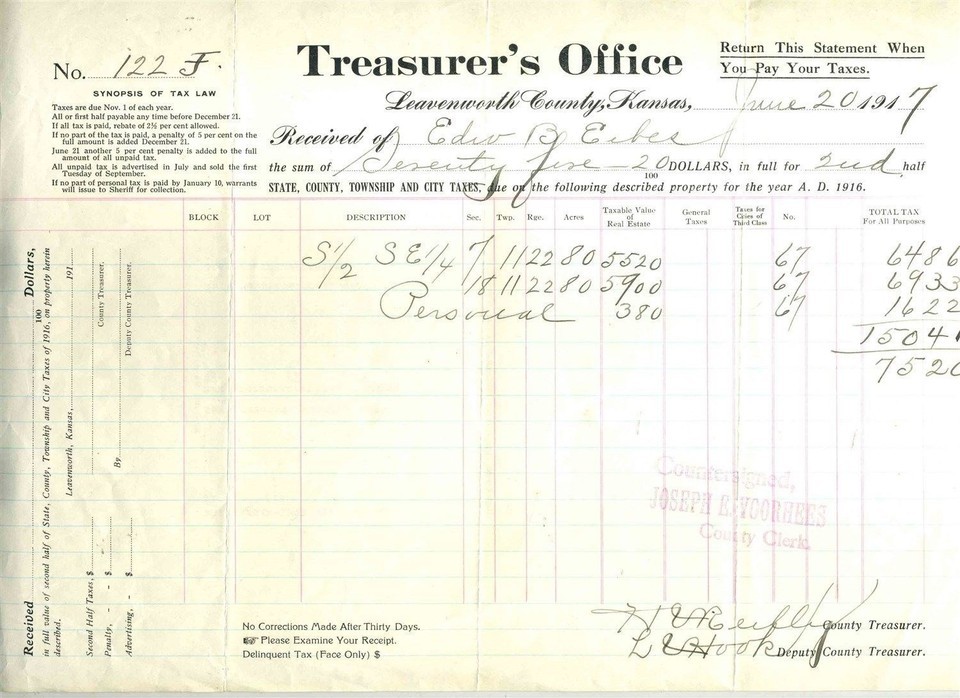 No. 122 F.
Treasurer's Office
Return This Statement When
You Pay Your Taxes.
SYNOPSIS OF TAX LAW
Taxes are due Nov. 1 of each year.
All or first half payable any time before December 21.
If all tax is paid, rebate of 2½ per cent allowed.
If no part of the tax is paid, a penalty of 5 per cent on the
full amount is added December 21.
June 21 another 5 per cent penalty is added to the full
amount of all unpaid tax.
All unpaid tax is advertised in July and sold the first
Tuesday of September.
If no part of personal tax is paid by January 10, warrants
will issue to Sheriff for collection.
Leavenworth County, Kansas, June 20 1917
Received of Edw B Eibes
the sum of Seventy five 20/100 DOLLARS, in full for 2nd half
STATE, COUNTY, TOWNSHIP AND CITY TAXES, due on the following described property for the year A. D. 1916.
BLOCK LOT DESCRIPTION Sec. Twp. Rge. Acres Taxable Value of Real Estate General Taxes Taxes for Cities of Third Class No. TOTAL TAX For All Purposes
S1/2 SE1/4 7 11 22 80 5520 67 6486
18 11 22 80 5900 67 6933
Personal 380 67 1622
1504
7520
Received 100 Dollars,
in full value of second half of State, County, Township and City Taxes of 1916, on property herein
described.
Leavenworth, Kansas, 191
Second Half Taxes, $ County Treasurer.
Penalty, - - $ By
Advertising, - $ Deputy County Treasurer.
Countersigned,
JOSEPH E. VOORHEES
County Clerk.
No Corrections Made After Thirty Days.
☞ Please Examine Your Receipt.
Delinquent Tax (Face Only) $
County Treasurer.
Hook Deputy County Treasurer.